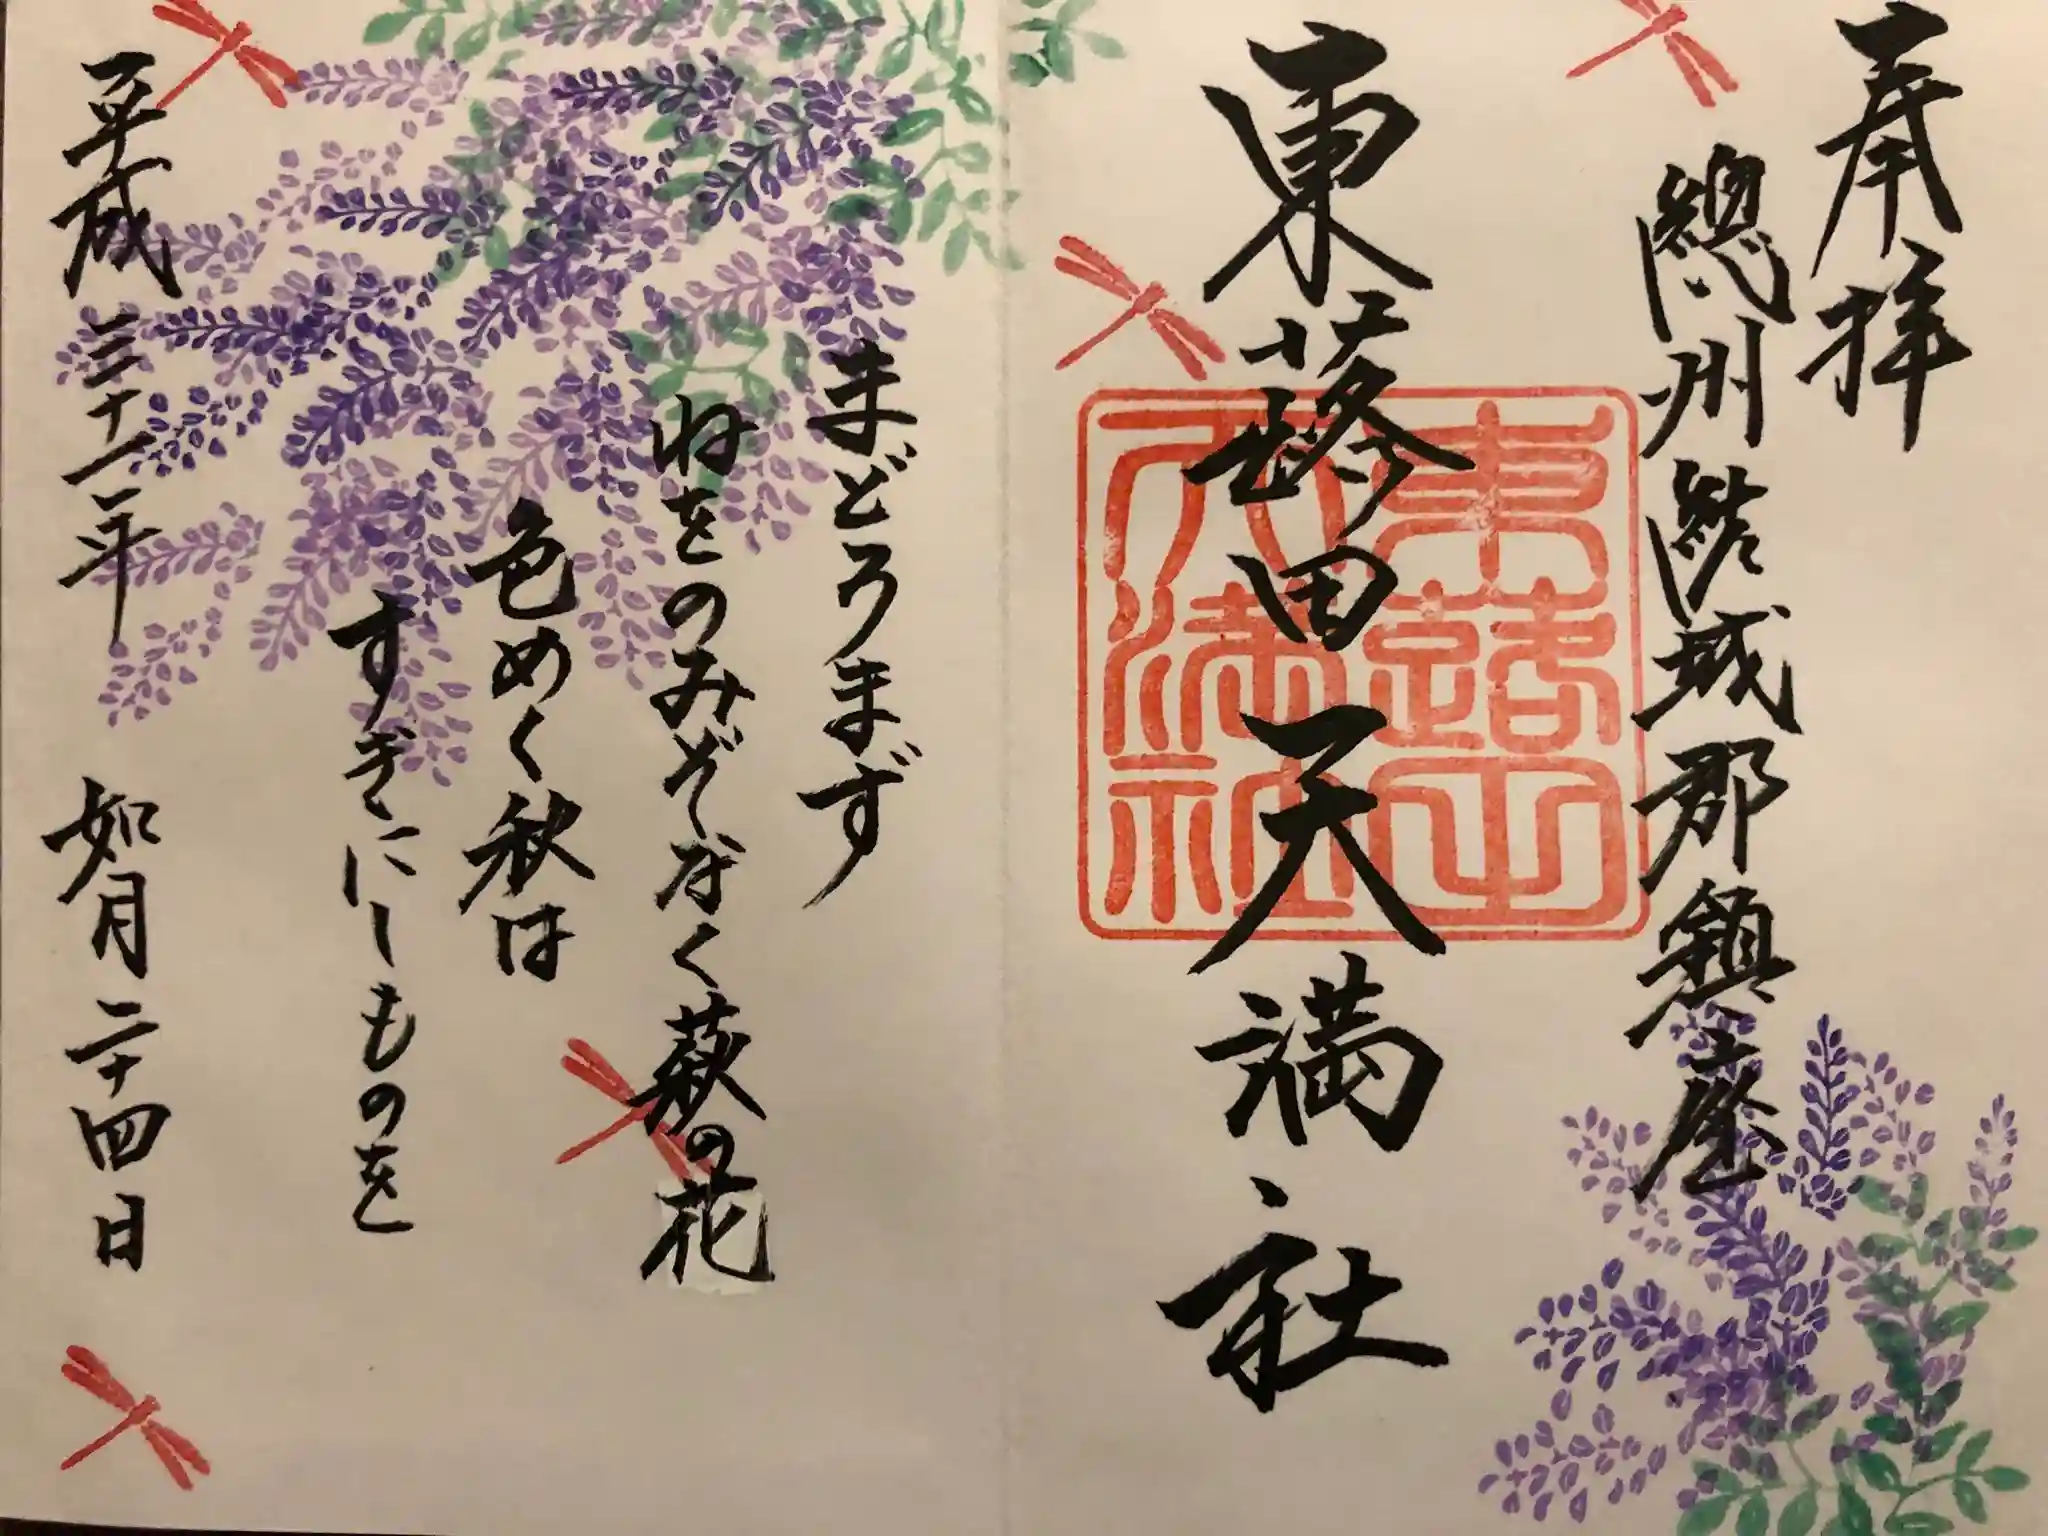 奉拝
總州結城郡鎮座
東蕗田天満社
東蕗田
天満社
まどろまず
ねをのみぞなく萩の花
色めく秋は
すぎにしものを
平成三十一年 如月二十四日